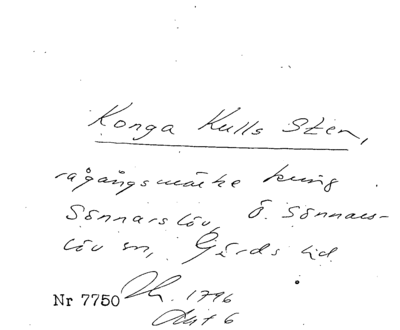 Konga Kulls Sten,
rågångsmärke kring
Sönnarslöv, Ö. Sönnars-
löv sn, Gärds hd
Nr 7750 1796
Akt 6